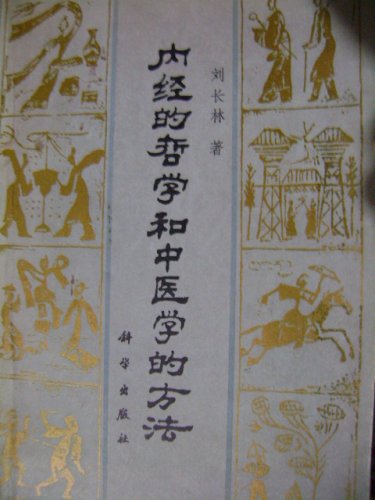 刘长林 著
内经的哲学和中医学的方法
科学出版社